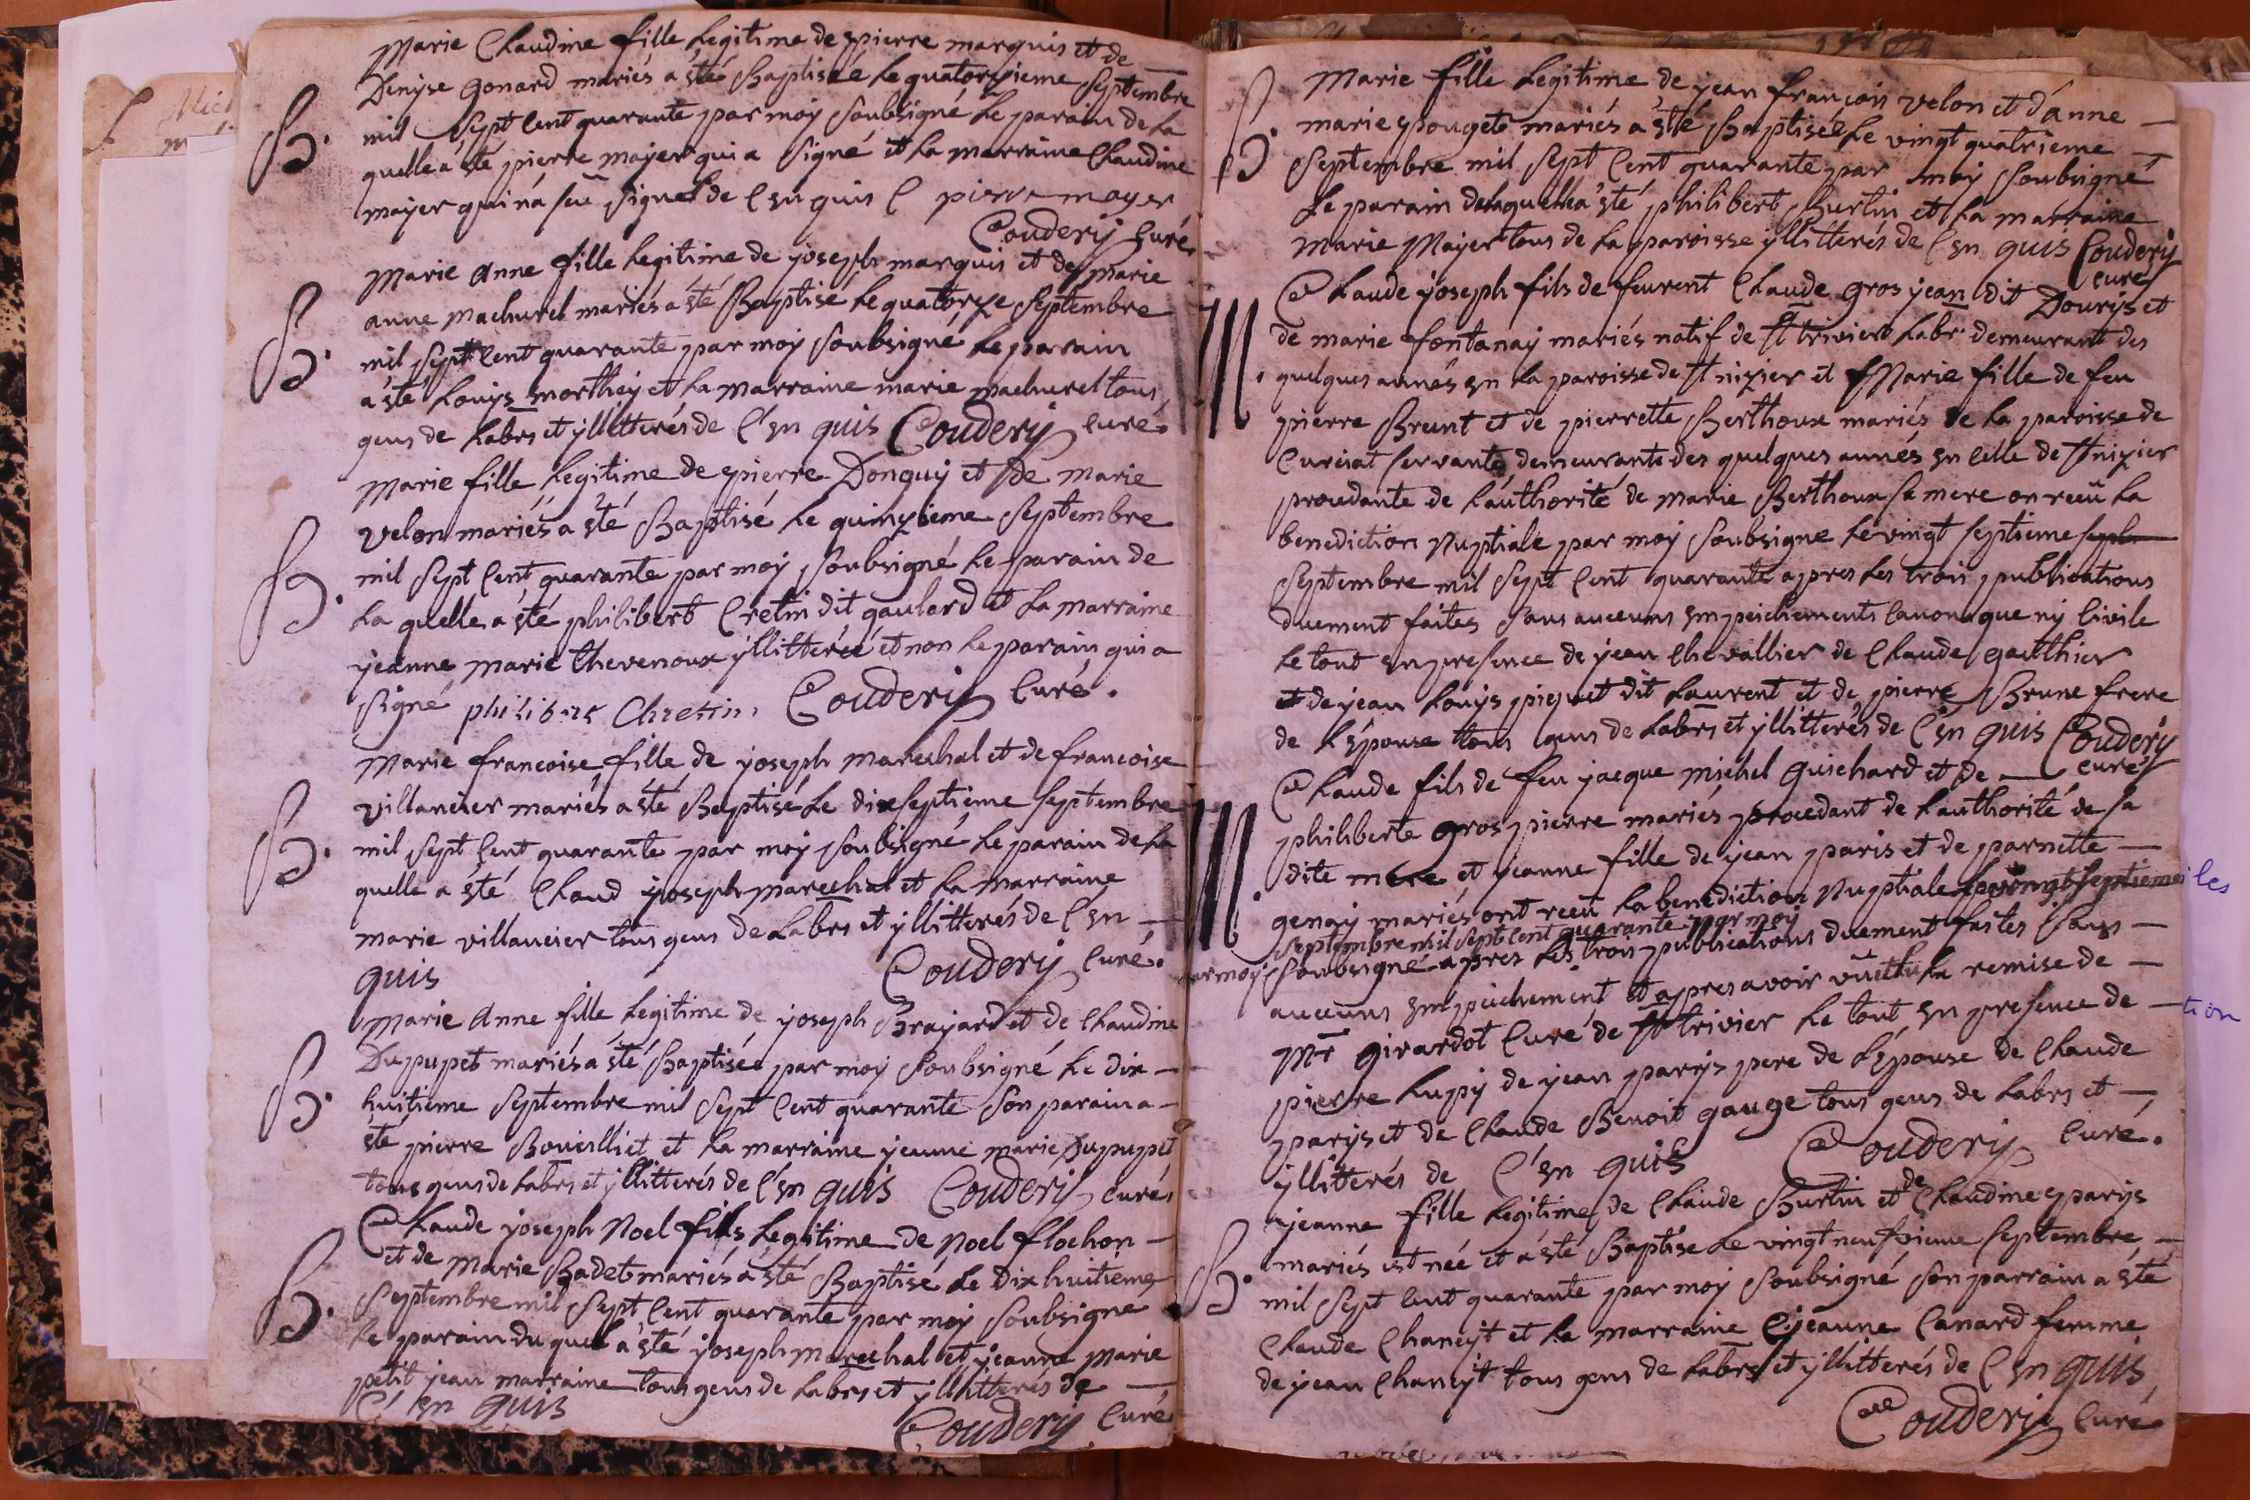 Marie Claudine fille Legitime de pierre marquis et de
Denyse Gonard mariés a été Baptiseé Le quatorzieme Septembre
mil sept cent quarante par moy soubsigné Le parain de La
B.
quelle a été pierre mayer qui a signé et La marraine Claudine
mayer qui n'a sceu signer de c'en quis pierre mayer
Couderij Curé
Marie Anne fille Legitime de yoseph marquis et de marie
anne machurel mariés a été Baptisé Le quatorze Septembre
B.
mil sept cent quarante par moy soubsigné Le parain
a été Louys morthey et La marraine marie machurel tous
gens de Labrs et yllitterés de c'en quis Couderij curé.
Marie fille Legitime de pierre Donguy et de marie
velon mariés a été Baptisé Le quinzieme Septembre
B.
mil sept cent quarante par moy soubsigné Le parain de
La quelle a été philibert Cretin dit gaulard et La marraine
yeanne marie thevenoux yllitterée et non Le parain qui a
signé philibert Chretin Couderij Curé.
Marie francoise fille de yoseph marechal et de francoise
villancier mariés a été Baptisé Le dixseptieme Septembre
B.
mil sept cent quarante par moy soubsigné Le parain de La
quelle a été Claud yoseph marechal et La marraine
marie villancier tous gens de Labrs et yllitterés de c'en
quis Couderij Curé.
Marie Anne fille Legitime de yoseph Brajard et de Claudine
Dupupet mariés a été Baptisée par moy soubsigné Le dix
B.
huitieme Septembre mil sept cent quarante son parain a
été pierre Bouilliet et La marraine yeanne marie Dupupet
tous gens de Labrs et yllitterés de c'en quis Couderij curé
Claude yoseph Noel fils Legitime de Noel flochon
et de Marie Badet mariés a été Baptisé Le Dixhuitieme
B.
Septembre mil sept cent quarante par moy soubsigne
Le parain du quel a été yoseph marechal et yeanne marie
petit yean marraine tous gens de Labrs et yllitterés de
C'en quis Couderij Curé
Marie fille Legitime de yean françois velon et d'anne
marie pouget mariés a été Baptisée Le vingt quatrieme
B.
Septembre mil sept cent quarante par moy soubsigné
Le parain de laquelle a été philibert Burtin et La marraine
marie Mayer tous de La paroisse yllitterés de c'en quis Couderij
curé
Claude yoseph fils de Claude gros yean dit Dourys et
M.
de marie fontanay mariés natif de St trivier Labr demeurant des
quelques annés en La paroisse de St nizier et Marie fille de feu
pierre Brunt et de pierrette Berthoux mariés de La paroisse de
Curciat servante demeurante des quelques annés en celle de St nizier
procedante de L'authorité de marie Berthoux sa mere on receü La
benediction Nuptiale par moy soubsigne Le vingt septieme septe
Septembre mil sept cent quarante apres Les trois publications
duement faites sans aucuns enpeichements canonique ny civile
Le tout en presence de yean chevallier de Claude gauthier
et de yean Louys piquet dit Laurent et de pierre Brune frere
de L'épouse tous gens de Labrs et yllitterés de c'en quis Couderij
curé
Claude fils de feu yacque michel Guichard et de
M.
philiberte Gros pierre mariés procedant de L'authorité de sa
dite mere et yeanne fille de yean paris et de parnette
genay mariés ont receü La benediction Nuptiale Le vingt septieme
les
Septembre mil sept cent quarante par moy
par moy
soubsigné apres Les trois publications duement faites sans
aucuns enpeichement et apres avoir La remise de
tion
Mr Girardot Curé de St trivier Le tout en presence de
pierre Lupy de yean parys pere de L'épouse de Claude
parys et de Claude Benoit gauge tous gens de Labrs et
yllitterés de C'en quis Couderij Curé.
yeanne fille Legitime de Claude Burtin et de Claudine parys
mariés est née et a été Baptise Le vingt neufvieme Septembre
B.
mil sept cent quarante par moy soubsigné son parrain a été
Claude Chancyt et La marraine yeanne Canard femme
de yean Chancyt tous gens de Labrs et yllitterés de c'en quis
Couderij Curé